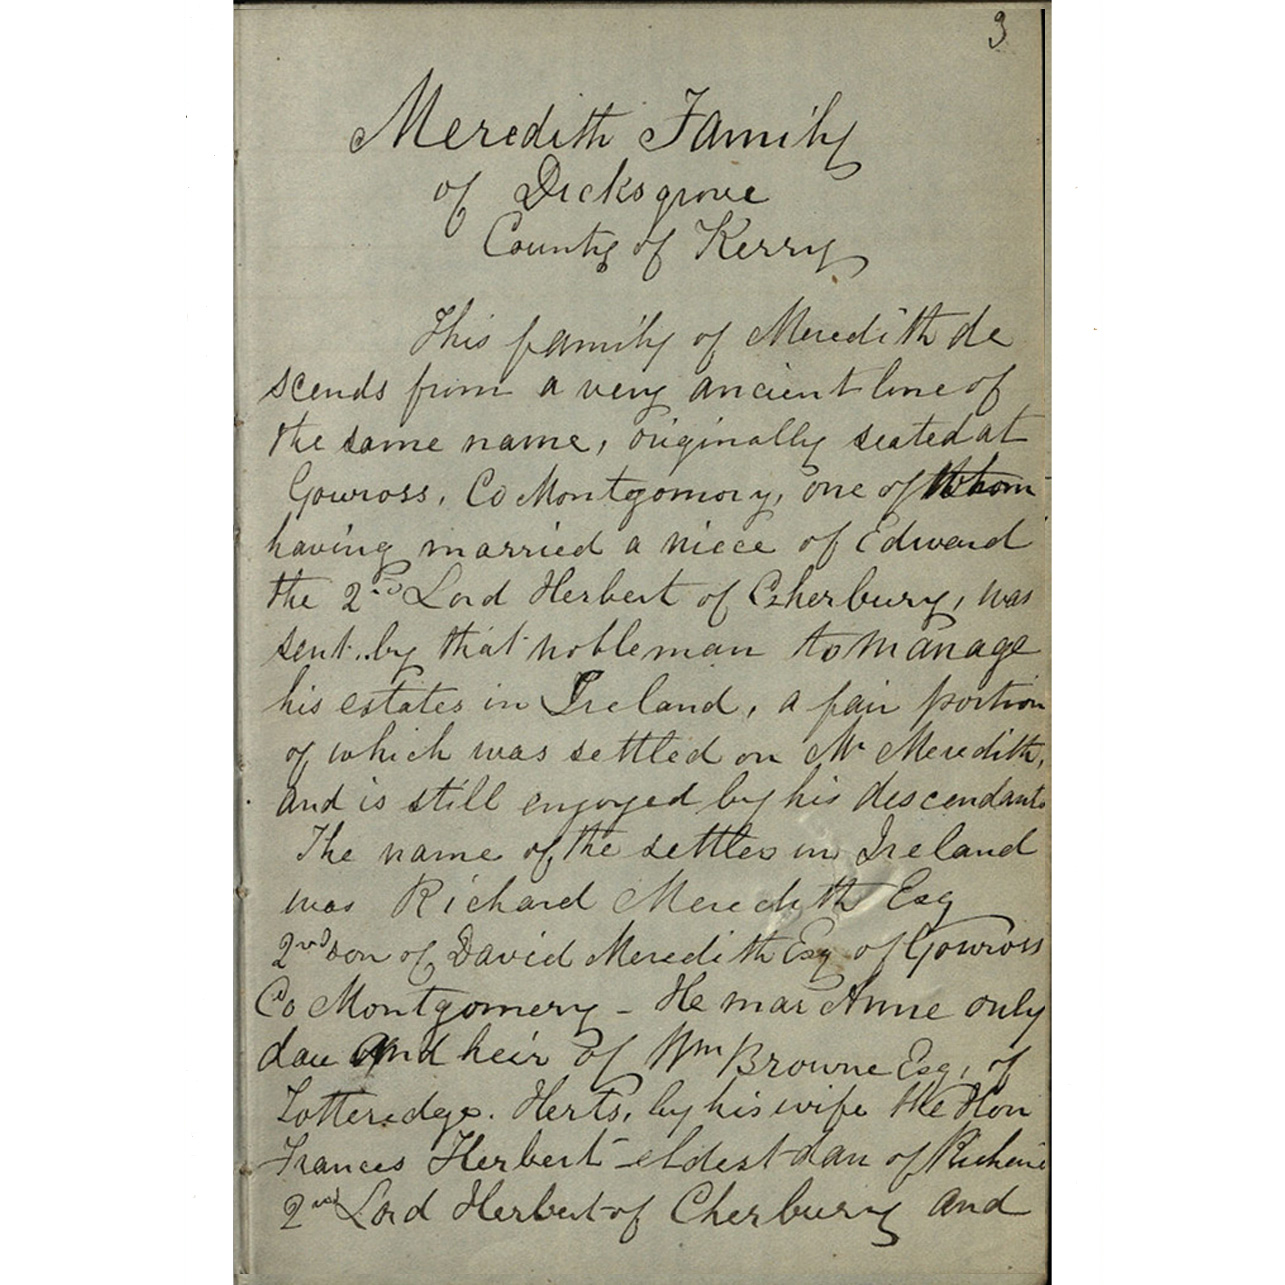 3
Meredith Family
of Dicksgrove
County of Kerry
This family of Meredith de
scends from a very ancient line of
the same name, originally seated at
Gowross, Co Montgomory, one of Whom
having married a niece of Edward
the 2nd Lord Herbert of Cherbury, was
sent by that nobleman to manage
his estates in Ireland, a fair portion
of which was settled on Mr Meredith,
and is still enjoyed by his descendants
The name of the settler in Ireland
was Richard Meredith Esq
2nd son of David Meredith Esq of Gowross
Co Montgomery - He mar Anne only
dau and heir of Wm Browne Esq, of
Totteredge. Herts, by his wife the Hon
Frances Herbert - eldest dau of Richard
2nd Lord Herbert of Cherbury and